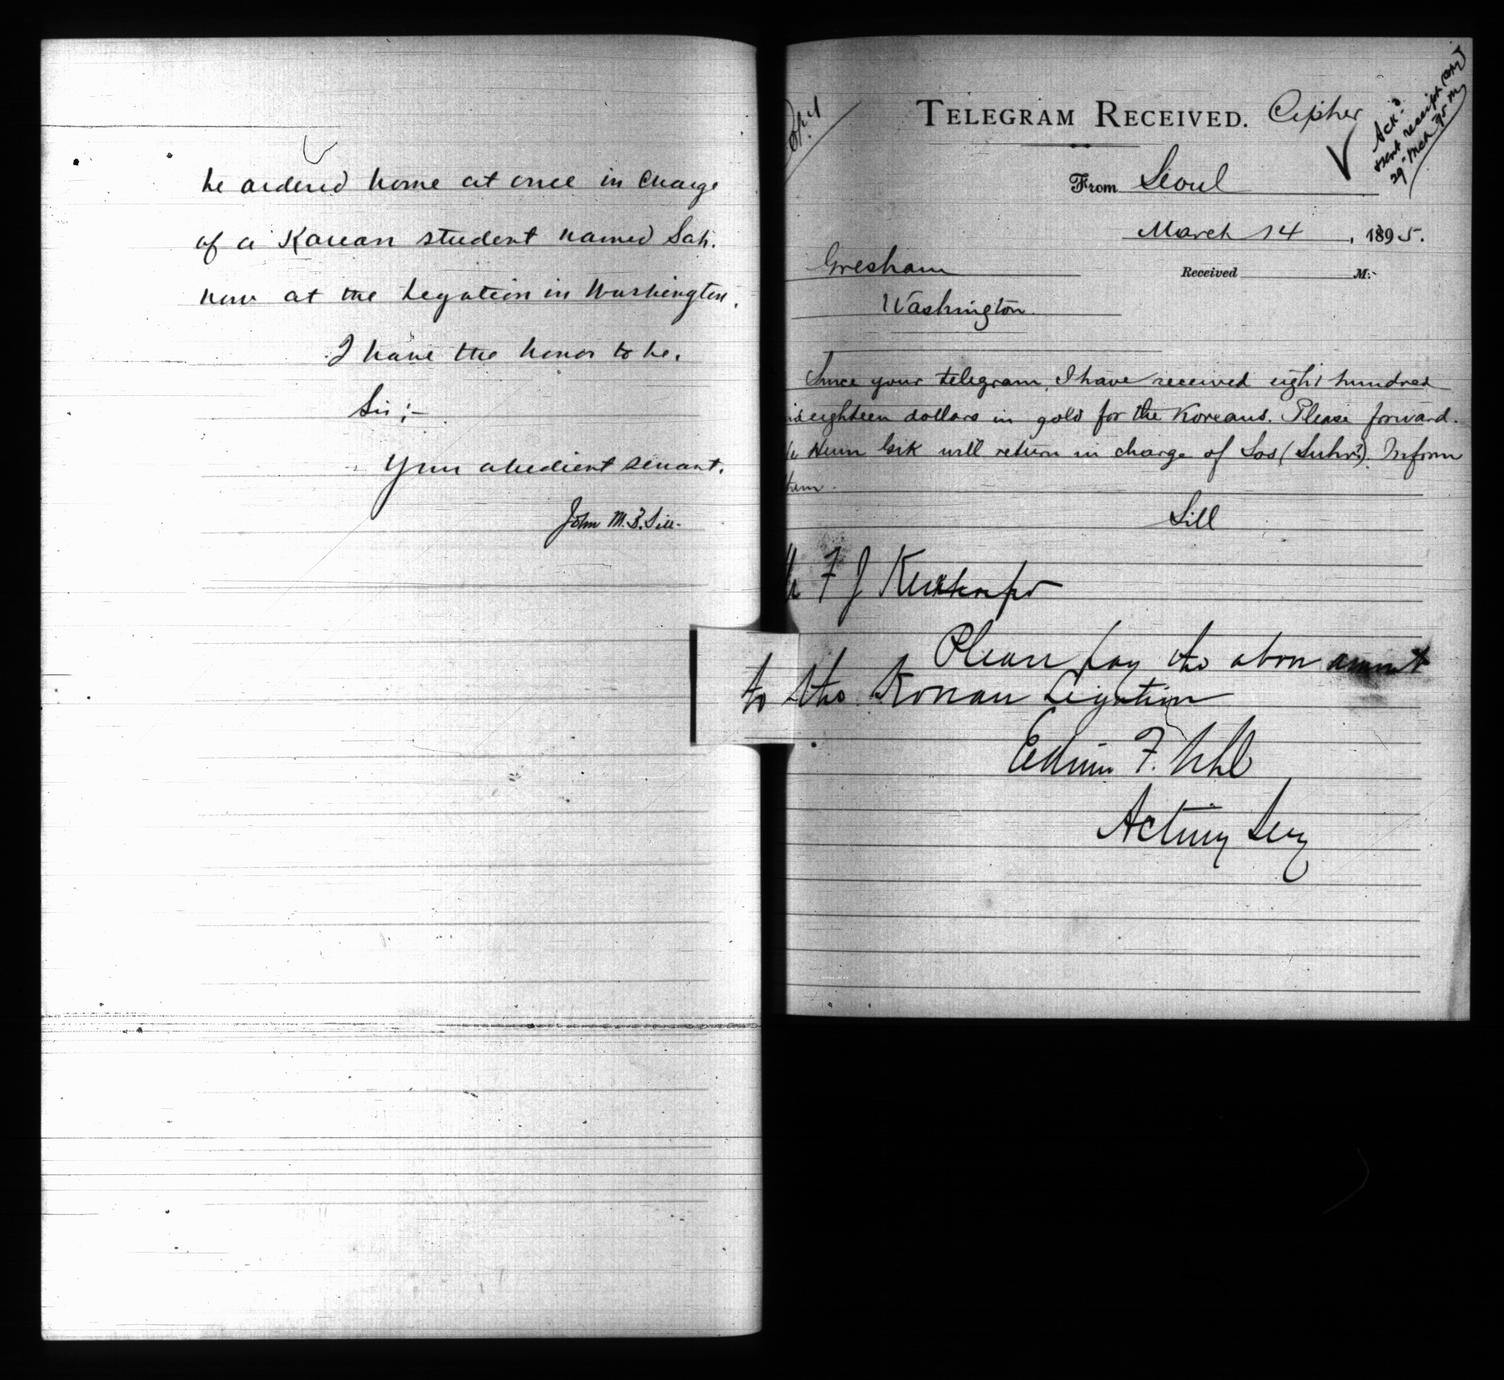 be ordered home at once in charge
of a Korean student named Sah.
now at the Legation in Washington.
I have the honor to be,
Sir;—
Your obedient servant,
John M. B. Sill.
Copy
TELEGRAM RECEIVED. Cipher
Ack'd
sent receipt
29 Mch 95
From Seoul
March 14, 1895.
Gresham
Received M.
Washington.
Since your telegram, I have received eight hundred
eighteen dollars in gold for the Koreans. Please forward.
Heun Gik will return in charge of Sos (Suhr?). Inform
them.
Sill
F J
Please pay the above amount
to the Korean Legation
Edwin F. Uhl
Acting Secy